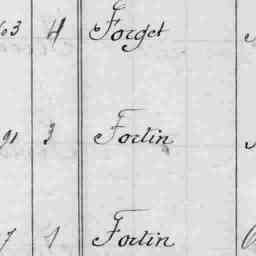 63 4 Forget
91 3 Fortin
7 1 Fortin